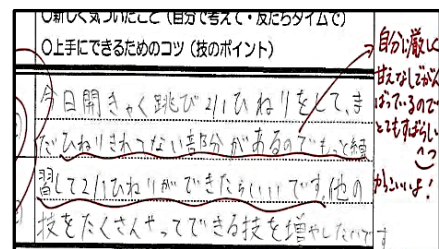 ○新しく気づいたこと（自分で考えて・友だちタイムで）
○上手にできるためのコツ（技のポイント）
今日開きゃく跳び2/1ひねりをして、ま
だひねりきれてない部分があるのでもっと練
習して2/1ひねりができたらいいです。他の
技をたくさんやってできる技を増やしたいです
自分に厳しく
甘えなしでがん
ばっているので
とてもすばらしい
かっこいいよ!